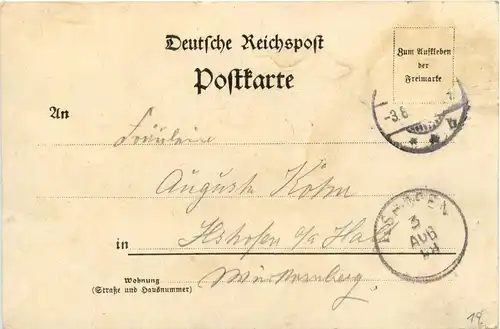 Deutsche Reichspost
Postkarte
Zum Aufkleben
der
Freimarke
-3.8
b
An
Fräulein
Auguste Köhn
ILSHOFEN
3
AUG
in Ilshofen o/a Hall
Württemberg
Wohnung
(Straße und Hausnummer)
19.